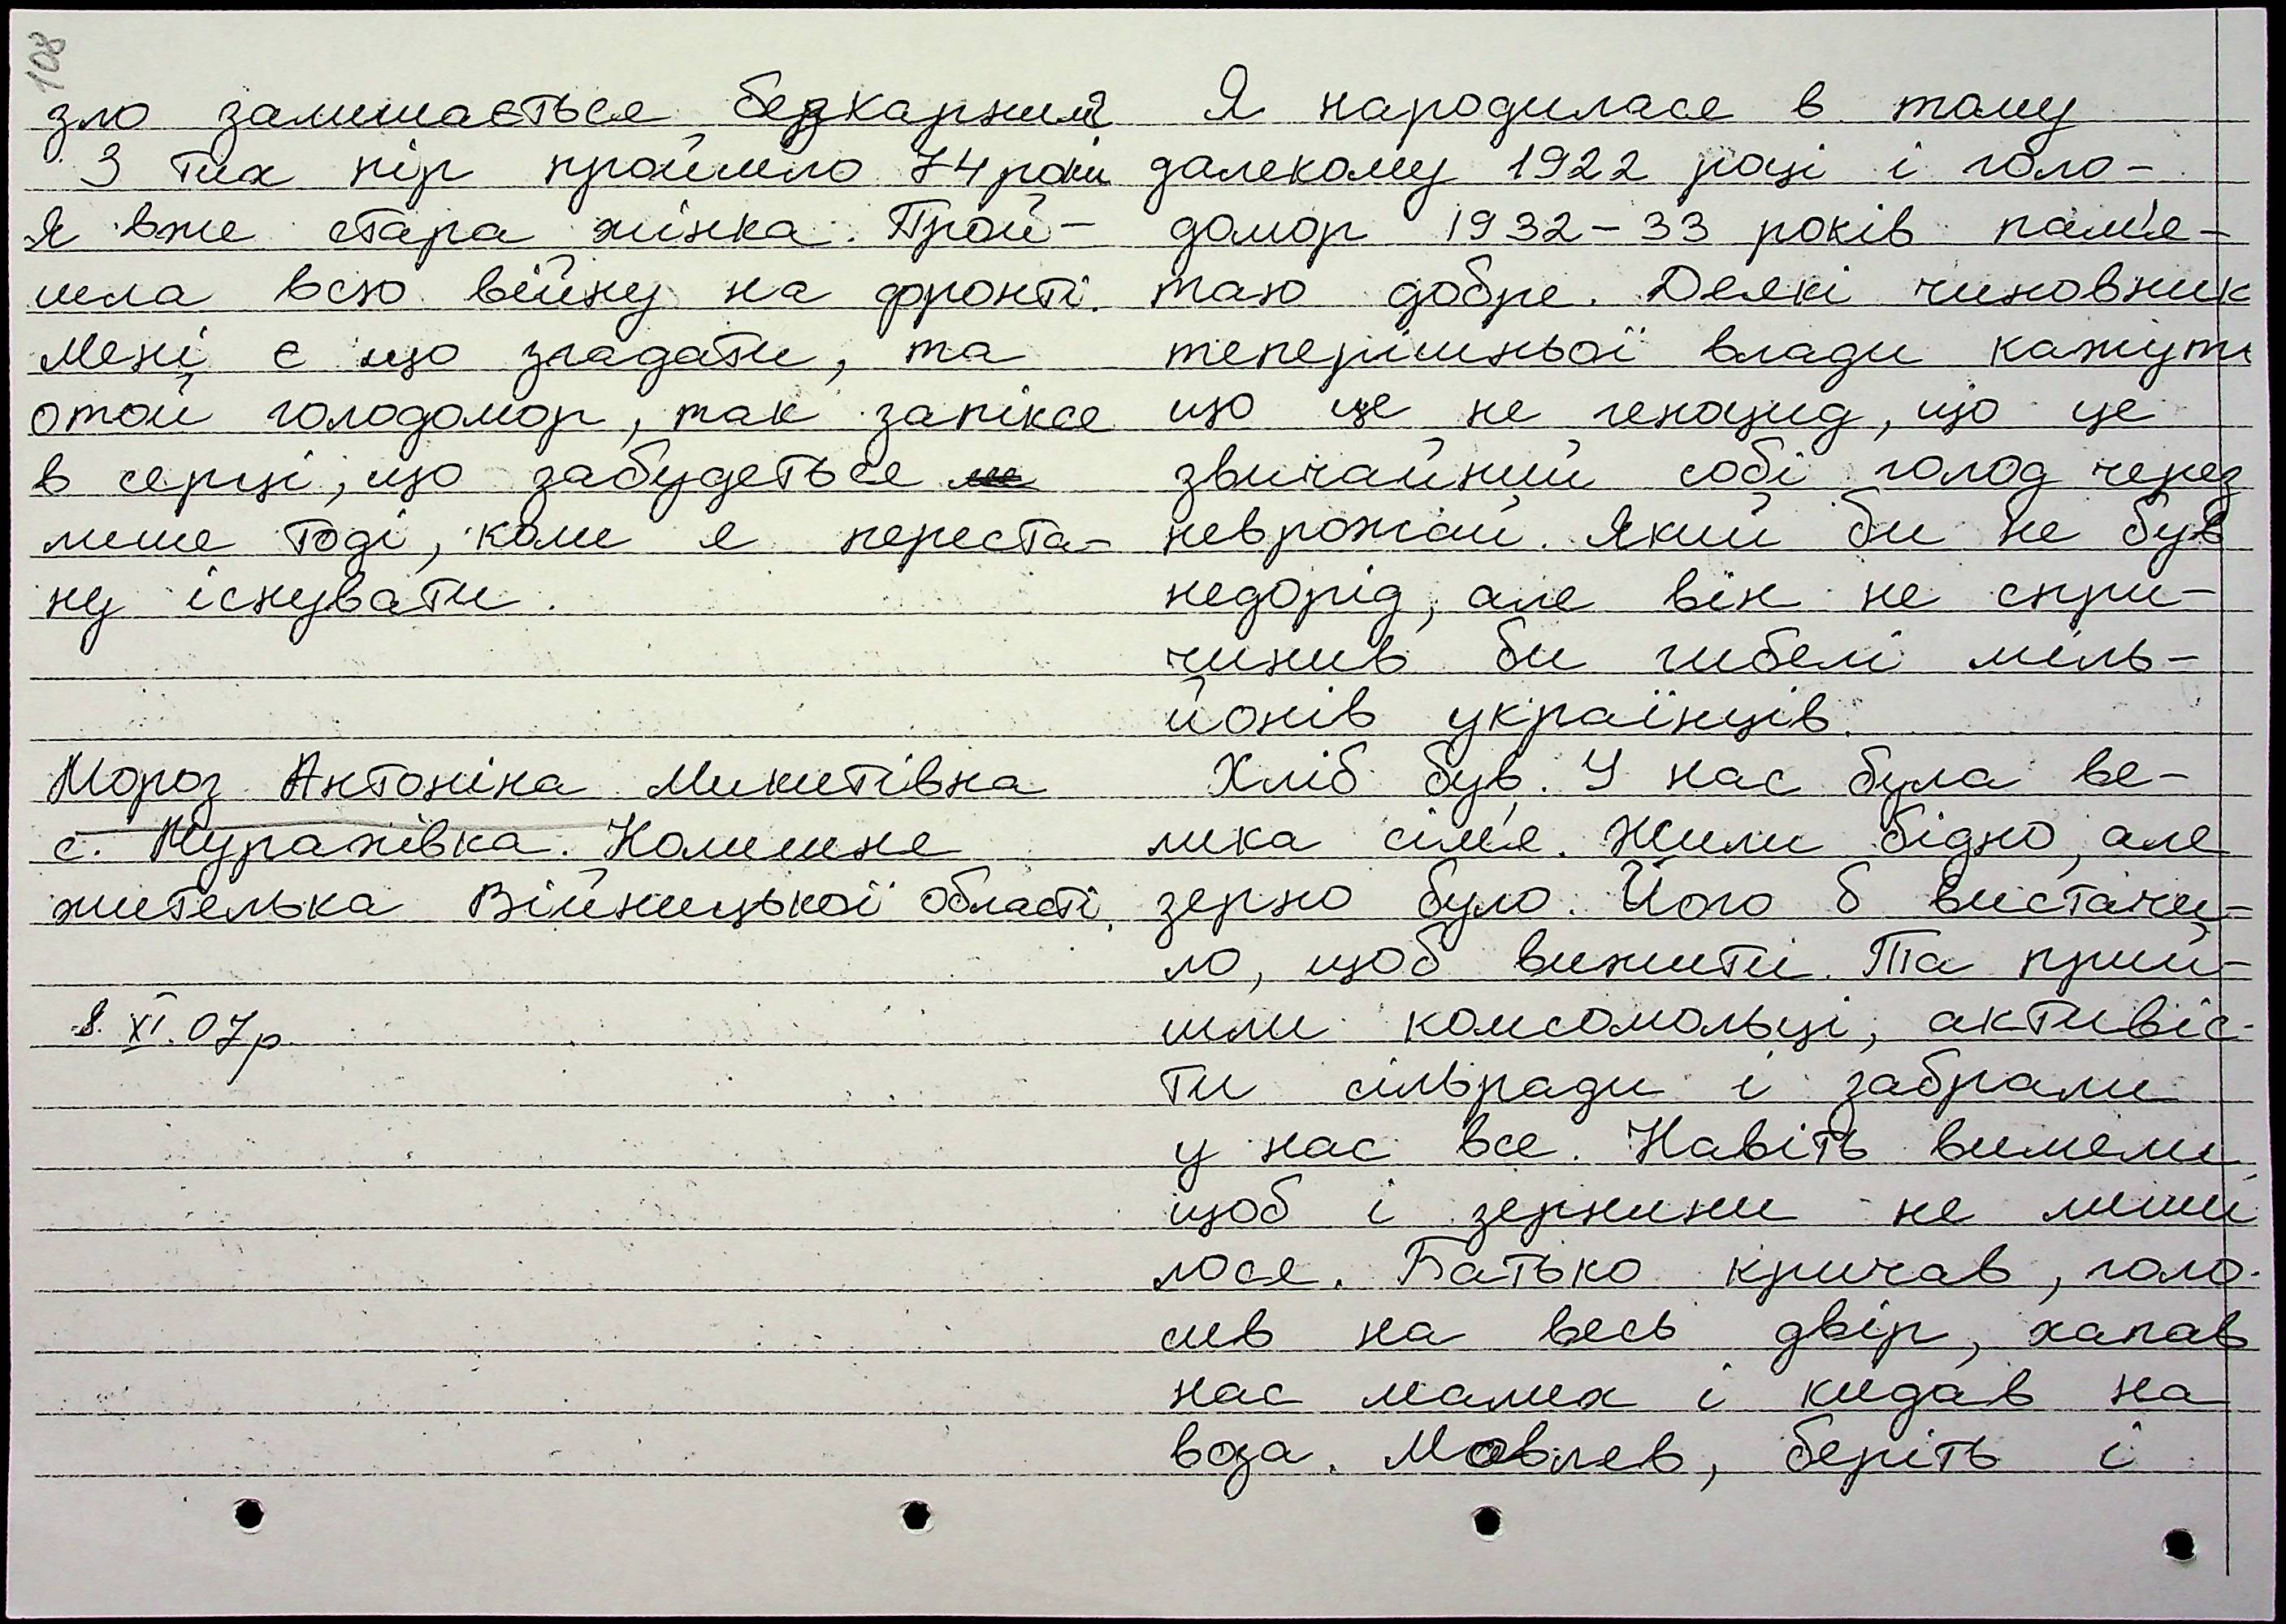 108
зло залишається безкарним?
З тих пір пройшло 74 роки
Я вже стара жінка. Прой-
шла всю війну на фронті.
Мені є що згадати, та
отой голодомор, так запікся
в серці, що забудеться
лише тоді, коли я переста-
ну існувати.
Мороз Антоніна Микитівна
с. Журажівка. Колишня
жителька Війницької області.
8. XI. 07р.
Я народилася в тому
далекому 1922 році і голо-
домор 1932-33 років пам'я-
таю добре. Деякі чиновник
теперішньої влади кажуть
що це не геноцид, що це
звичайний собі голод через
неврожай. Який би не був
недорід, але він не спри-
чинив би гибелі міль-
йонів українців.
Хліб був. У нас була ве-
лика сім'я. Жили бідно, але
зерно було. Його б вистачи-
ло, щоб вижити. Та прий-
шли комсомольці, активіс-
ти сільради і забрали
у нас все. Навіть вимели,
щоб і зернини не лиши
лося. Батько кричав, голо-
сив на весь двір, хапав
нас малих і кидав на
воза. Мовляв, беріть і